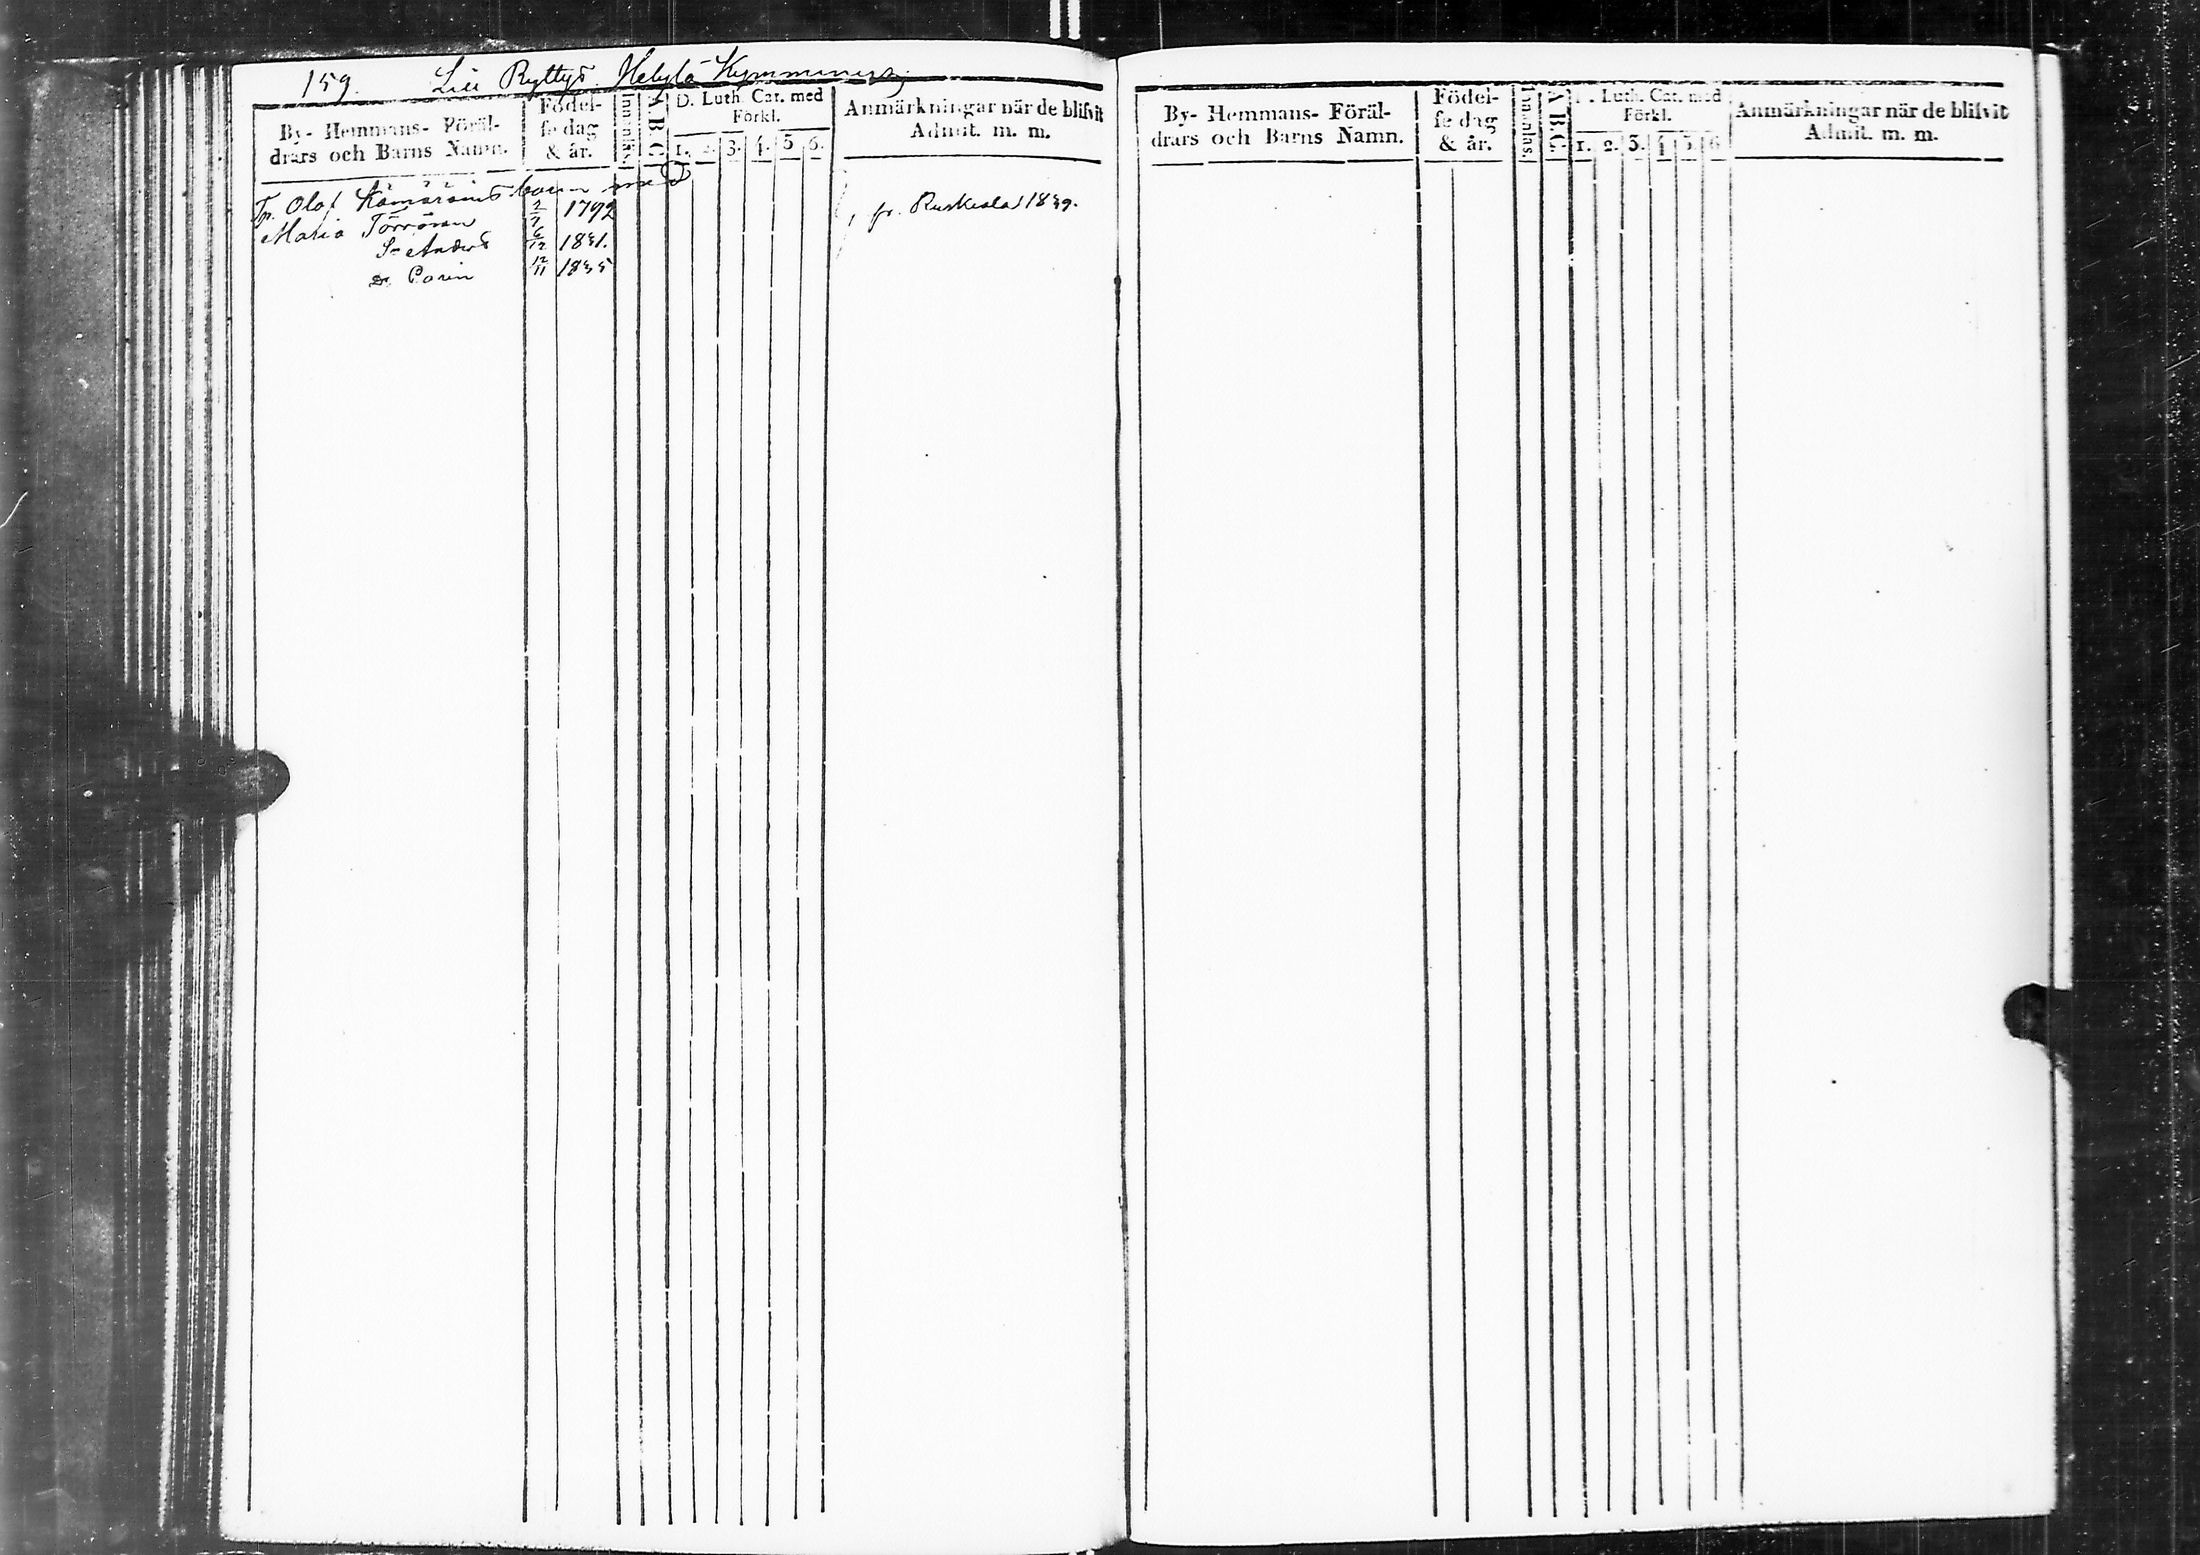 159. Lill Ryttys Helylä Kymmenys
By- Hemmans- Föräl-
drars och Barns Namn.
Födel-
se dag
& år.
Innanläs.
A.B.C.
D. Luth. Cat. med
Förkl.
1. 2. 3. 4. 5 6.
Anmärkningar när de blifvit
Admit. m. m.
Tp. Olof Kämäräinens barn med
Maria Törrönen 2/7 1792 fr. Ruskeala 1839.
S. Anders 6/12 1831.
D. Carin 12/11 1835
By- Hemmans- Föräl-
drars och Barns Namn.
Födel-
se dag
& år.
Innanläs.
A B.C.
D. Luth. Cat. med
Förkl.
1. 2. 3. 4 5. 6
Anmärkningar när de blifvit
Admit. m. m.